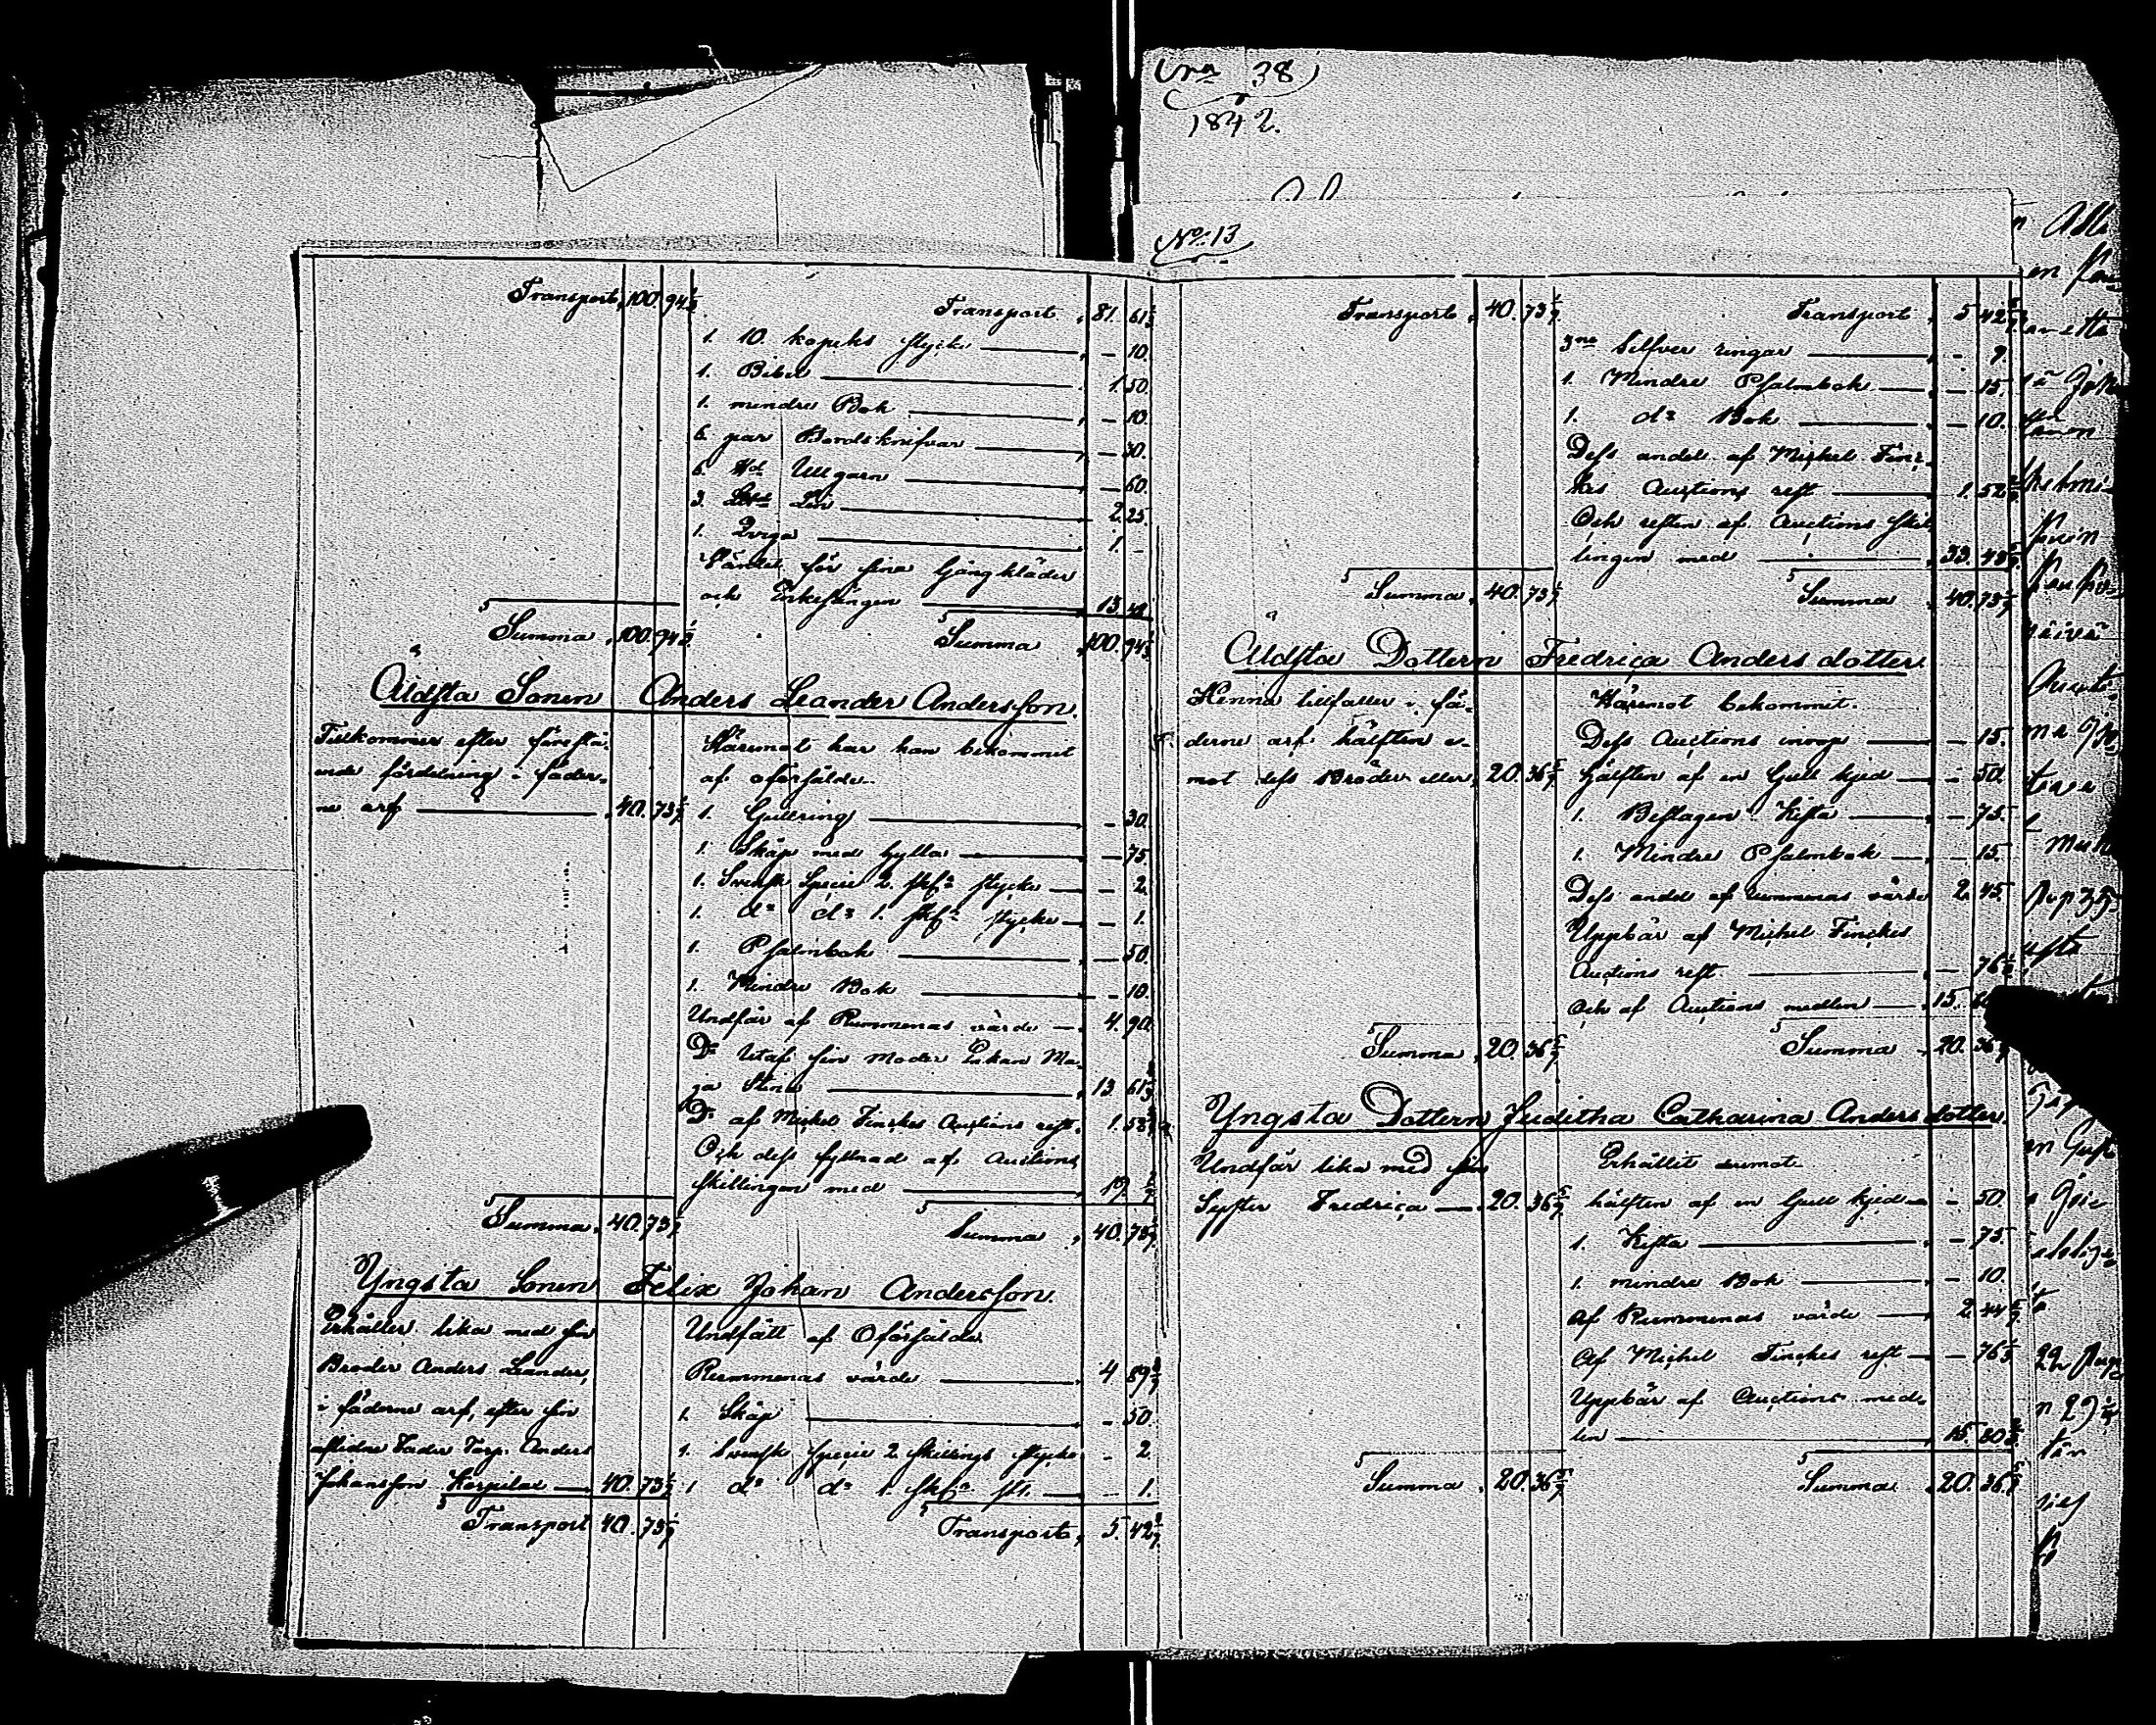 38
1842.
No: 13
Transport, 100. 94 1/3
Transport, 81. 61 1/3
1. 10. kopeks stycke — 10.
1. Bibel 1. 50.
1. mindre Bok — 10.
6. par Bordsknifvar — 30.
6. Ullgarn — 60.
3. Lin 2. 25.
1. 1. –
för sina Gångkläder
och Enkesängen 13.
Summa, 100. 94 1/3
Summa, 100. 94 1/3
Äldsta Sonen Anders Leander Andersson.
Tillkommer efter förestå-
ende fördelning i fäder-
ne arf 40. 73 1/7
Häremot har han bekommit
af oförsålde
1. Gullring — 30.
1. Skåp med hylla — 75.
1. Svensk Specie 2. sks stycke — 2.
1. do do 1. sks stycke — 1.
1. Psalmbok — 50.
1. Mindre Bok — 10.
Undfår af Rummenas värde 4. 90.
Do Utaf sin Moder Enkan Ma-
ja Stina 13. 61
Do af Mickel Finckes Auctions rest. 1.
Och dess fyllnad af Auctions
skillingen med 19.
Summa, 40. 73 1/7
Summa, 40. 73 1/7
Yngsta Sonen Felix Johan Andersson.
Erhåller lika med sin
Broder Anders Leander,
i fäderne arf, efter sin
aflidne Fader Torp. Anders
Johansson 40. 73 1/7
Transport 40. 73 1/7
Undfått af Oförsålde
Rummenas värde 4. 89
1. Skåp — 50.
1. Svensk specie 2. skillings stycke — 2.
1. do do 1. sks st. — 1.
Transport, 5. 42
Transport, 40. 73 1/7
Transport, 5. 42
3ne Silfver ringar — 9.
1. Mindre Psalmbok — 15.
1. do Bok — 10.
Dess andel af Mickel Finc-
kes Auctions rest 1. 52
Och resten af Auctions skil-
lingen med 33.
Summa, 40. 73 1/7
Summa, 40. 73 1/7
Äldsta Dottern Fredrica Andersdotter.
Henne tillfaller i fä-
derne arf hälften e-
mot dess Bröder eller, 20. 36 5/7
Häremot bekommit.
Dess Auctions inrop — 15.
Hälften af en Gull kjed — 50.
1. Beslagen Kista — 75.
1. Mindre Psalmbok — 15.
Dess andel af rummenas värde 2. 45.
Uppbär af Mickel Finckes
Auctions rest — 76
Och af Auctions medlen 15.
Summa, 20. 36 5/7
Summa, 20. 36
Yngsta Dottern Juditha Catharina Andersdotter.
Undfår lika med sin
Syster Fredrica 20. 36 5/7
Erhållit deremot
hälften af en Gull kjed — 50.
1. Kista — 75.
1. mindre Bok — 10.
Af Rummenas värde 2. 44
Af Mickel Finckes rest — 76
Uppbär af Auctions med-
len 15. 80
Summa, 20. 36 5/7
Summa, 20. 36 5/7